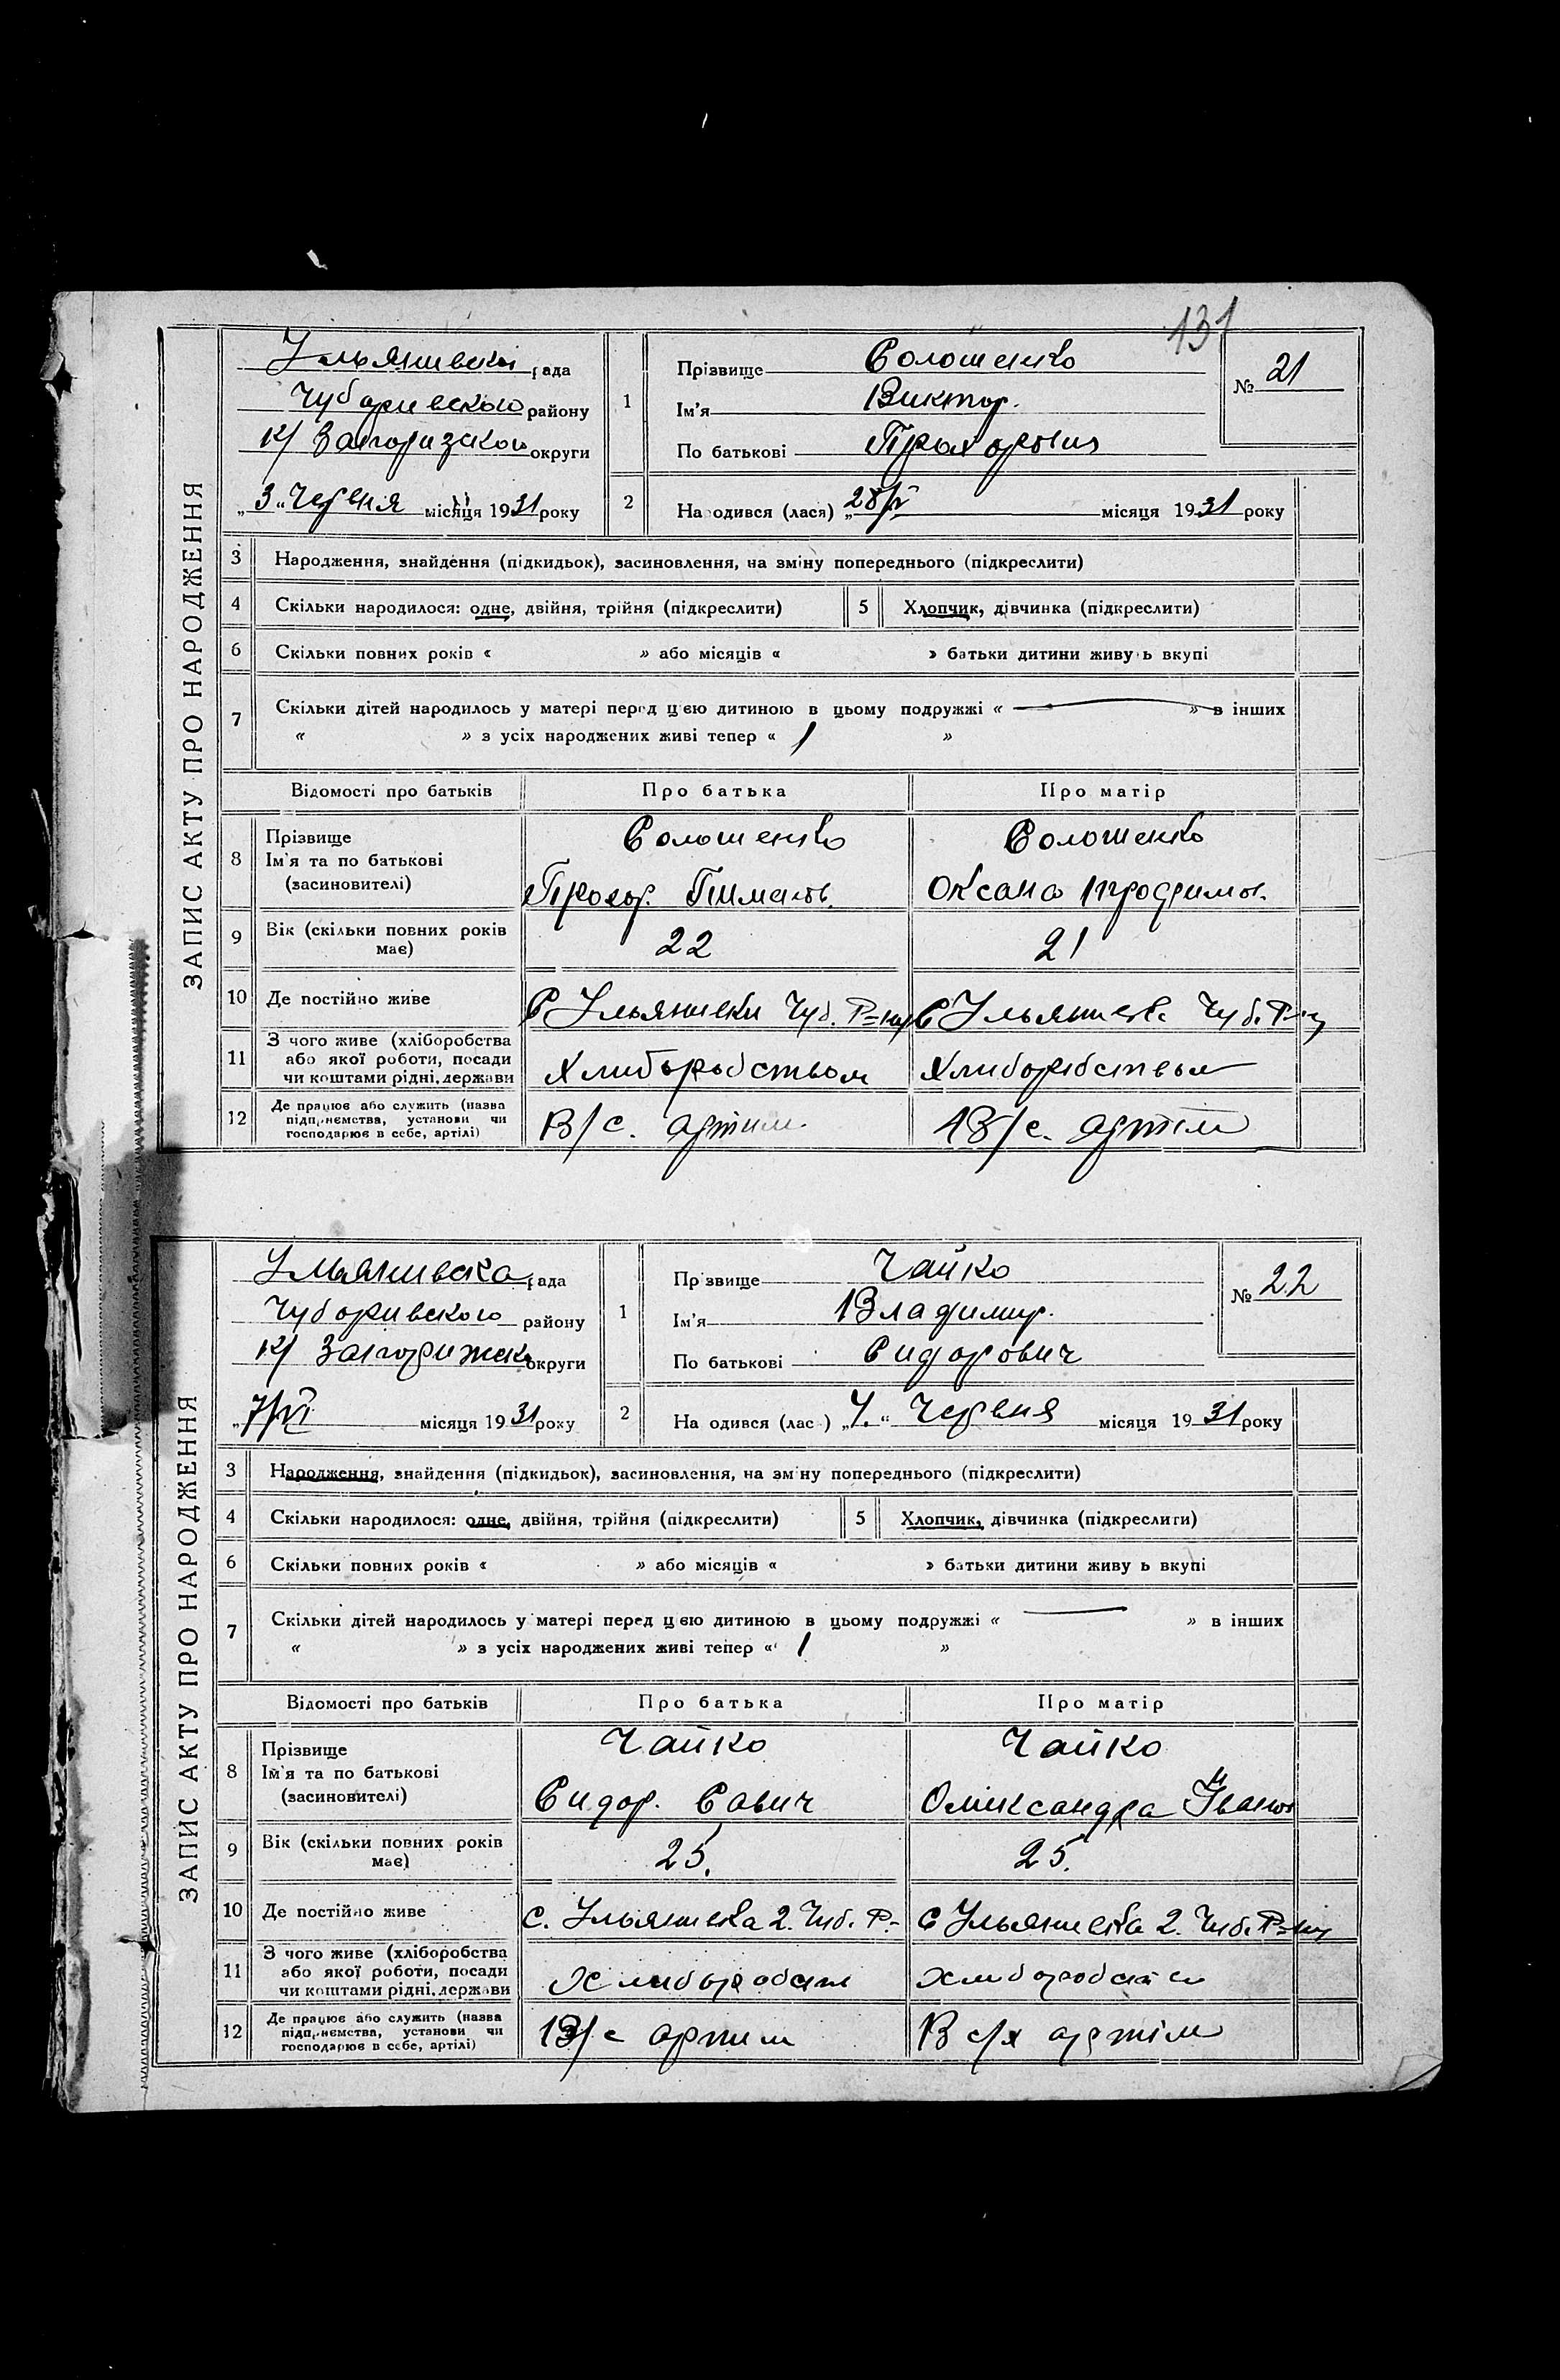 131
ЗАПИС АКТУ ПРО НАРОДЖЕННЯ
Ульянивска рада
Чубаривского району
К/ Запоризског округи
„3“ Червня місяця 1931 року
1
Прізвище Солошенко
Ім'я Виктор.
По батькові Прохорович
№ 21
2
Народився (лася) „28/V місяця 1931 року
3 Народження, знайдення (підкидьок), засиновлення, на зміну попереднього (підкреслити)
4 Скільки народилося: одне, двійня, трійня (підкреслити) 5 Хлопчик, дівчинка (підкреслити)
6 Скільки повних років « » або місяців « » батьки дитини живуть вкупі
7 Скільки дітей народилось у матері перед цією дитиною в цьому подружжі « — » в інших
« » з усіх народжених живі тепер « 1 »
Відомості про батьків Про батька Про матір
8 Прізвище
Ім'я та по батькові
(засиновителі)
Солошенко
Прохор.
Солошенко
Оксана
9 Вік (скільки повних років
має)
22 21
10 Де постійно живе
С Ульянивки Чуб. Р-ну С Ульянивк. Чуб. Р-ну
11 З чого живе (хліборобства
або якої роботи, посади
чи коштами рідні, держави
Хлиборобством Хлиборобством
12 Де працює або служить (назва
підприємства, установи чи
господарює в себе, артілі)
В/с. артили В/с. артіли
ЗАПИС АКТУ ПРО НАРОДЖЕННЯ
Ульянивска рада
Чубаривского району
К/ Запорижско округи
„7/VI місяця 1931 року
1
Прізвище Чайко
Ім'я Владимир.
По батькові Сидорович
№ 22
2
Народився (лася) „4.“ Червня місяця 1931 року
3 Народження, знайдення (підкидьок), засиновлення, на зміну попереднього (підкреслити)
4 Скільки народилося: одне, двійня, трійня (підкреслити) 5 Хлопчик, дівчинка (підкреслити)
6 Скільки повних років « » або місяців « » батьки дитини живуть вкупі
7 Скільки дітей народилось у матері перед цією дитиною в цьому подружжі « — » в інших
« » з усіх народжених живі тепер « 1 »
Відомості про батьків Про батька Про матір
8 Прізвище
Ім'я та по батькові
(засиновителі)
Чайко
Сидор. Савич
Чайко
Олександра Иванов
9 Вік (скільки повних років
має)
25. 25.
10 Де постійно живе
с. Ульянивка 2. Чуб. Р- с Ульянивка 2. Чуб. Р-ну
11 З чого живе (хліборобства
або якої роботи, посади
чи коштами рідні, держави
12 Де працює або служить (назва
підприємства, установи чи
господарює в себе, артілі)
В/с артили В с/х артіли